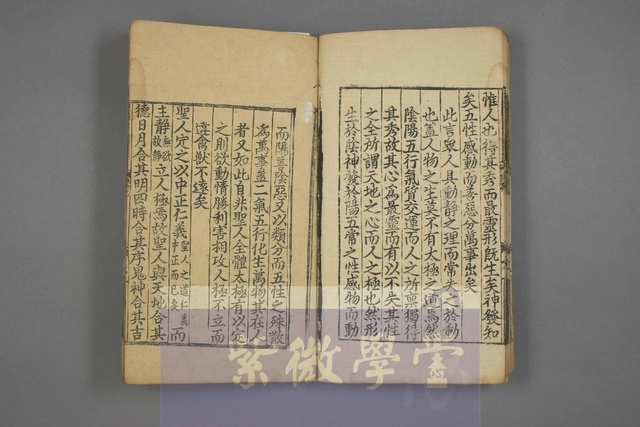 惟人也得其秀而最靈形既生矣神發知
矣五性感動而善惡分萬事出矣
此言眾人具動靜之理而常失之於動
也蓋人物之生莫不有太極之道焉然
陰陽五行氣質交運而人之所稟獨得
其秀故其心為最靈而有以不失其性
之全所謂天地之心而人之極也然形
生於陰神發於陽五常之性感物而動
而陽善陰惡又以類分而五性之殊散
為萬事蓋二氣五行化生萬物其在人
者又如此自非聖人全體太極有以定
之則欲動情勝利害相攻人極不立而
違禽獸不遠矣
聖人定之以中正仁義聖人之道仁義中正而已矣而
主靜無欲故靜立人極焉故聖人與天地合其
德日月合其明四時合其序鬼神合其吉
紫微學堂